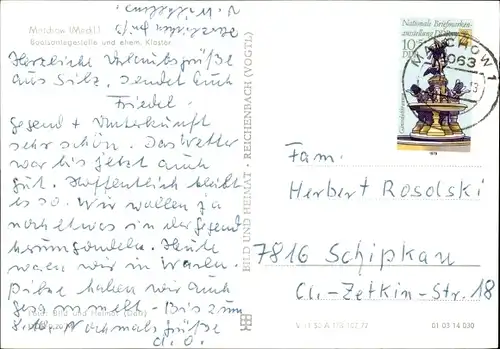 Malchow (Meckl.)
Bootsanlegestelle und ehem. Kloster
Herzliche Urlaubsgrüße
aus Silz, sendet Euch
Friedel.
Gegend + Unterkunft
sehr schön. Das Wetter
war bis jetzt auch
gut. Hoffentlich bleibt
es so. Wir wollen ja
noch etwas in der Gegend
herumgondeln. Heute
waren wir in Waren.
Pilze haben wir auch
gesammelt. Bis zum
Nochmals Grüße
d. O.
Foto: Bild und Heimat
BILD UND HEIMAT · REICHENBACH (VOGTL)
Nationale Briefmarken-
ausstellung
10
DDR
1979
MALCHOW 1
2063
Fam.
Herbert Rosolski
7816 Schipkau
Cl.-Zetkin-Str. 18
01 03 14 030